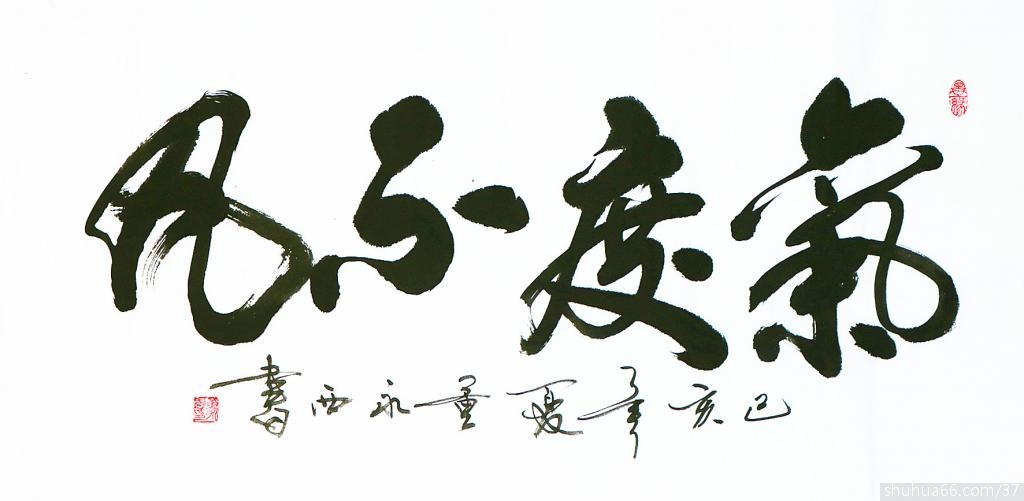 氣度不凡
己亥年夏董永西書
shuhua66.com/37